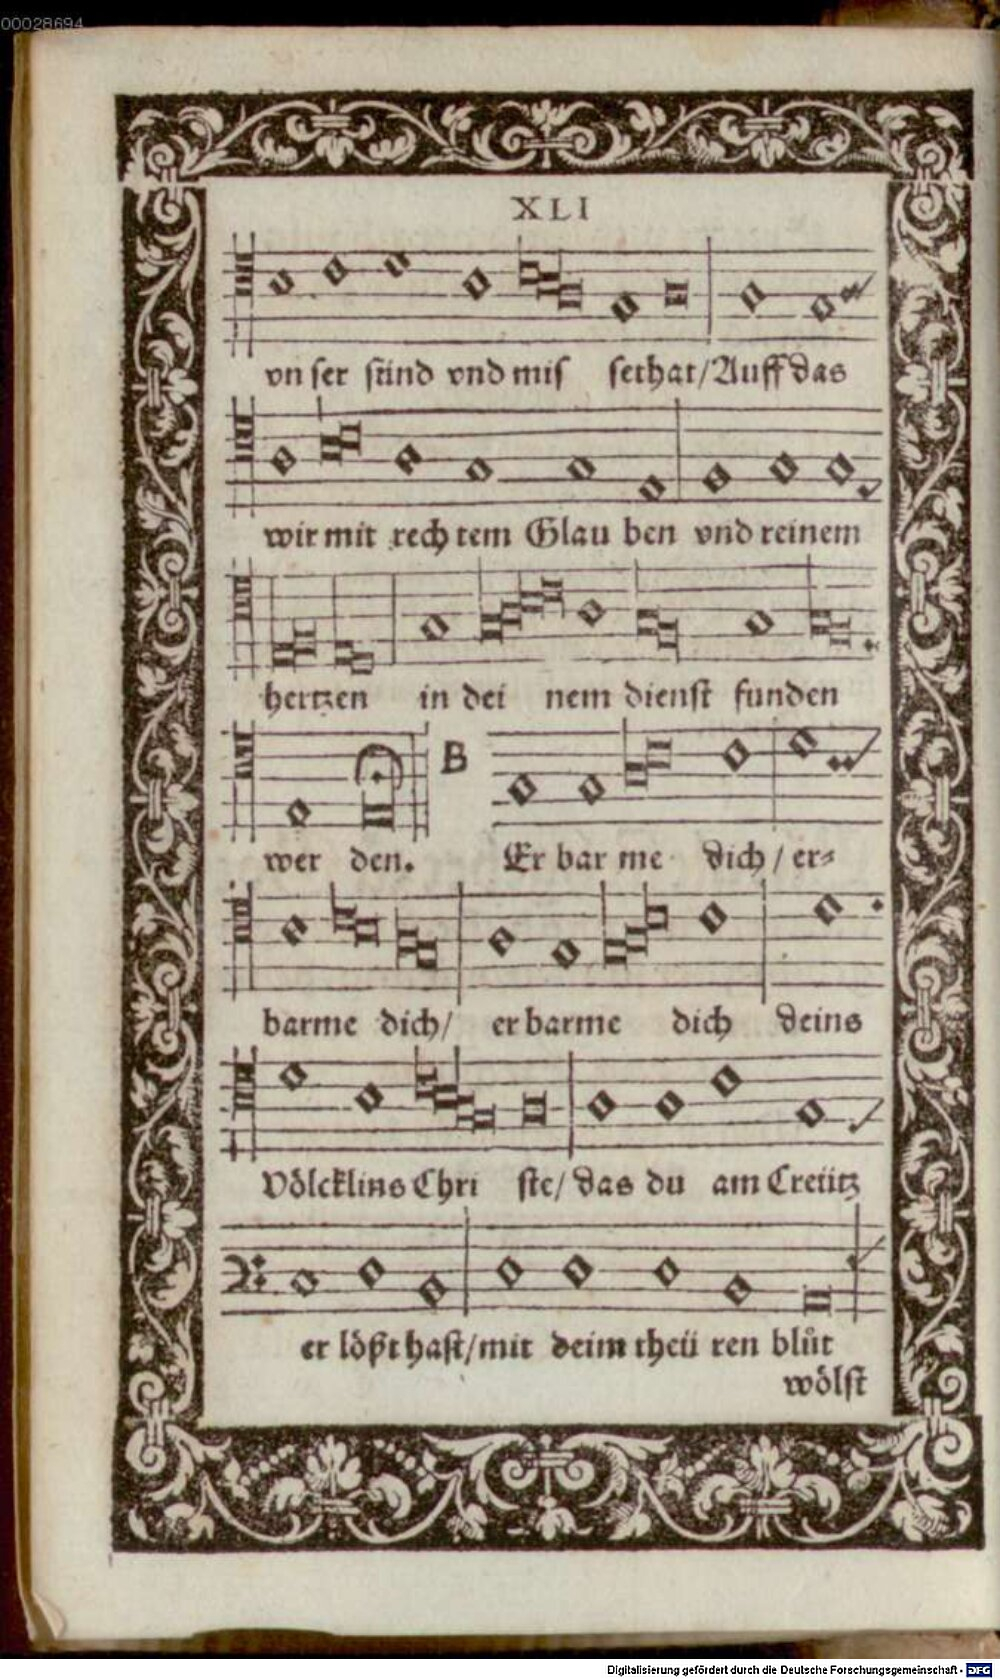 00028694
XLI
vnser sünd vnd mis sethat/Auff das
wir mit rech tem Glau ben vnd reinem
hertzen in dei nem dienst funden
B
wer den. Er bar me dich / er⸗
barme dich/ er barme dich deins
Völcklins Chri ste/ das du am Creütz
er lößt hast/mit deim theü ren blůt
wölst
Digitalisierung gefördert durch die Deutsche Forschungsgemeinschaft - DFG